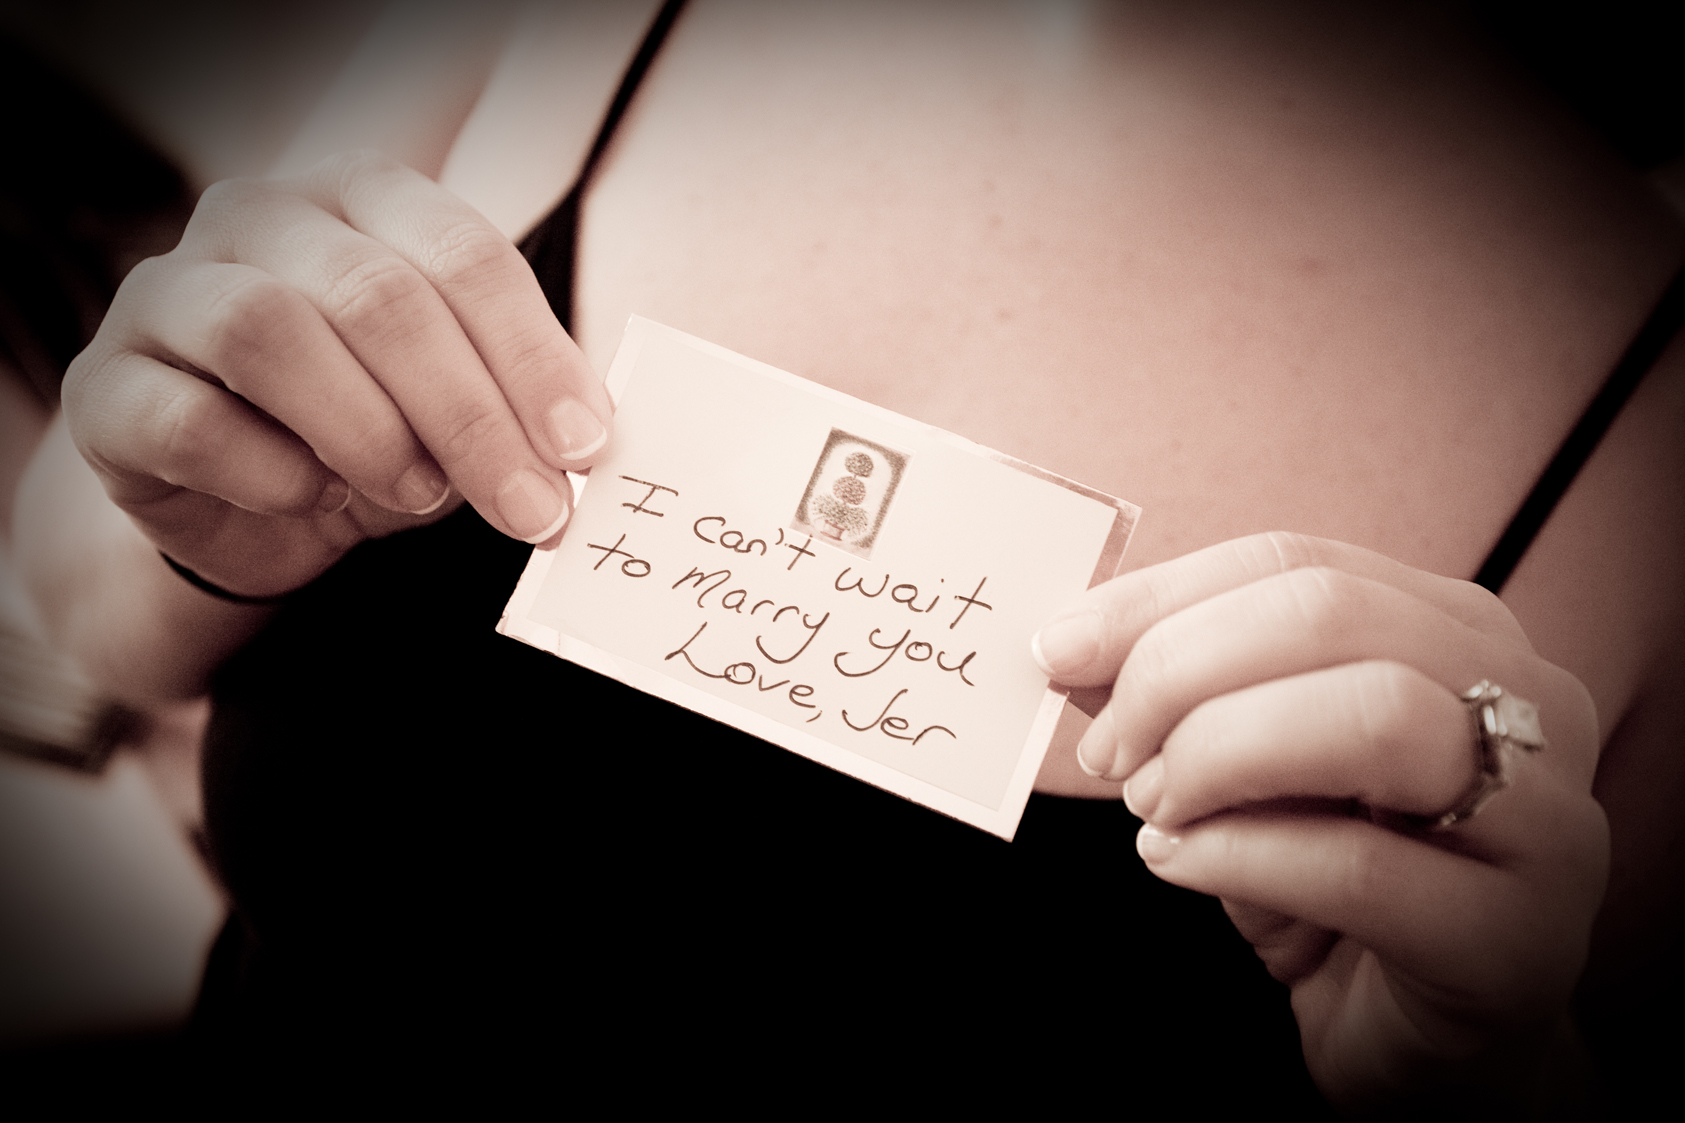 I can't wait
to marry you
Love, Jer